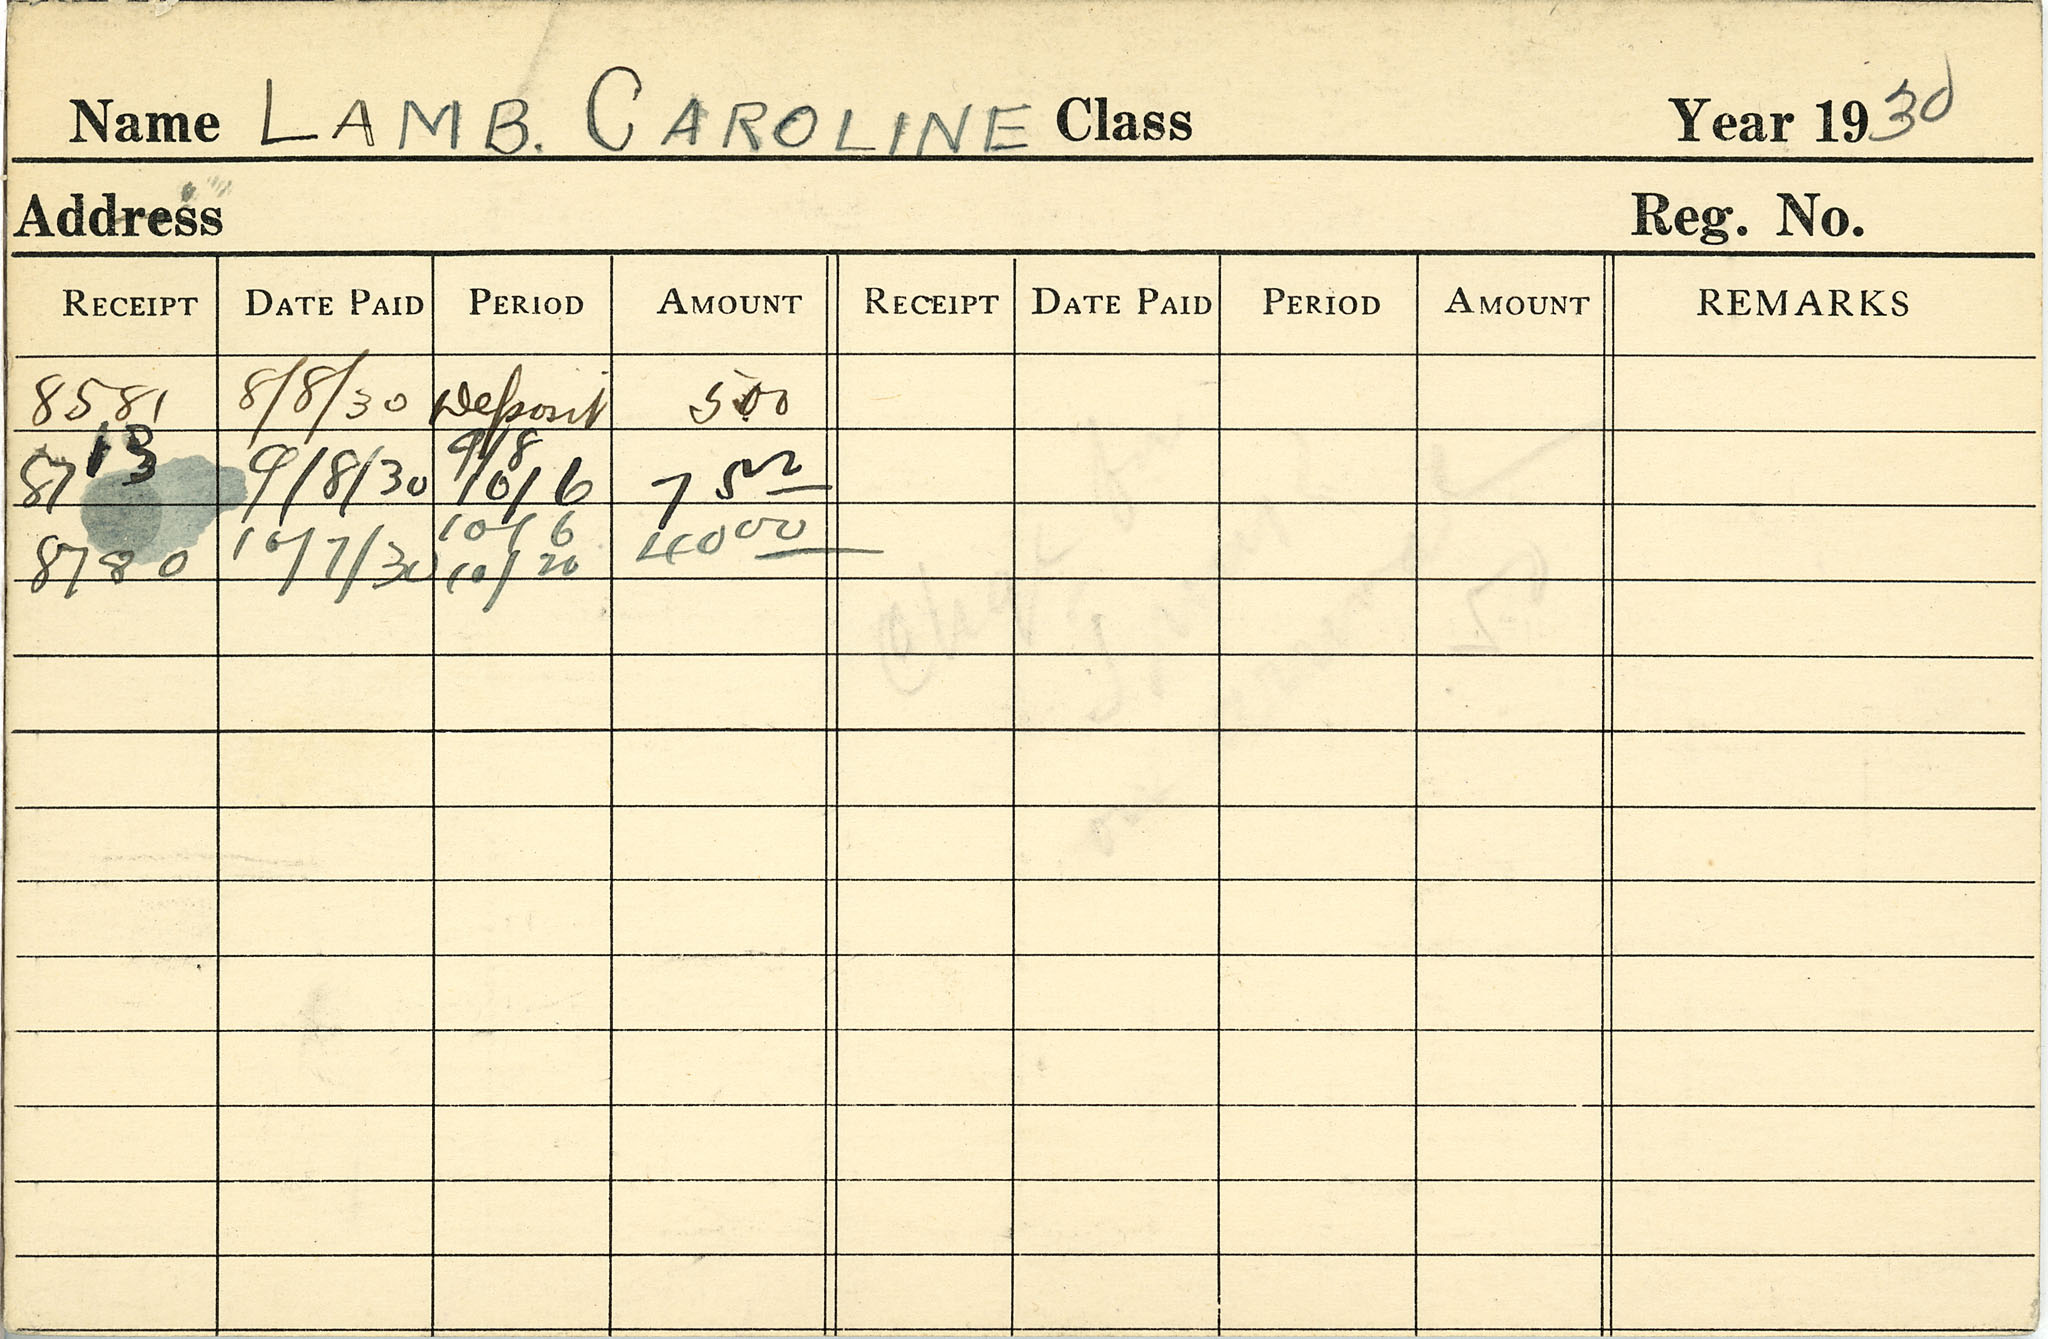 Name LAMB. CAROLINE Class Year 1930
Address Reg. No.
RECEIPT DATE PAID PERIOD AMOUNT RECEIPT DATE PAID PERIOD AMOUNT REMARKS
8581 8/8/30 Deposit 500
8713 9/8/30 9/8 10/6 75 00
8780 10/7/30 10/6 10/20 40 00